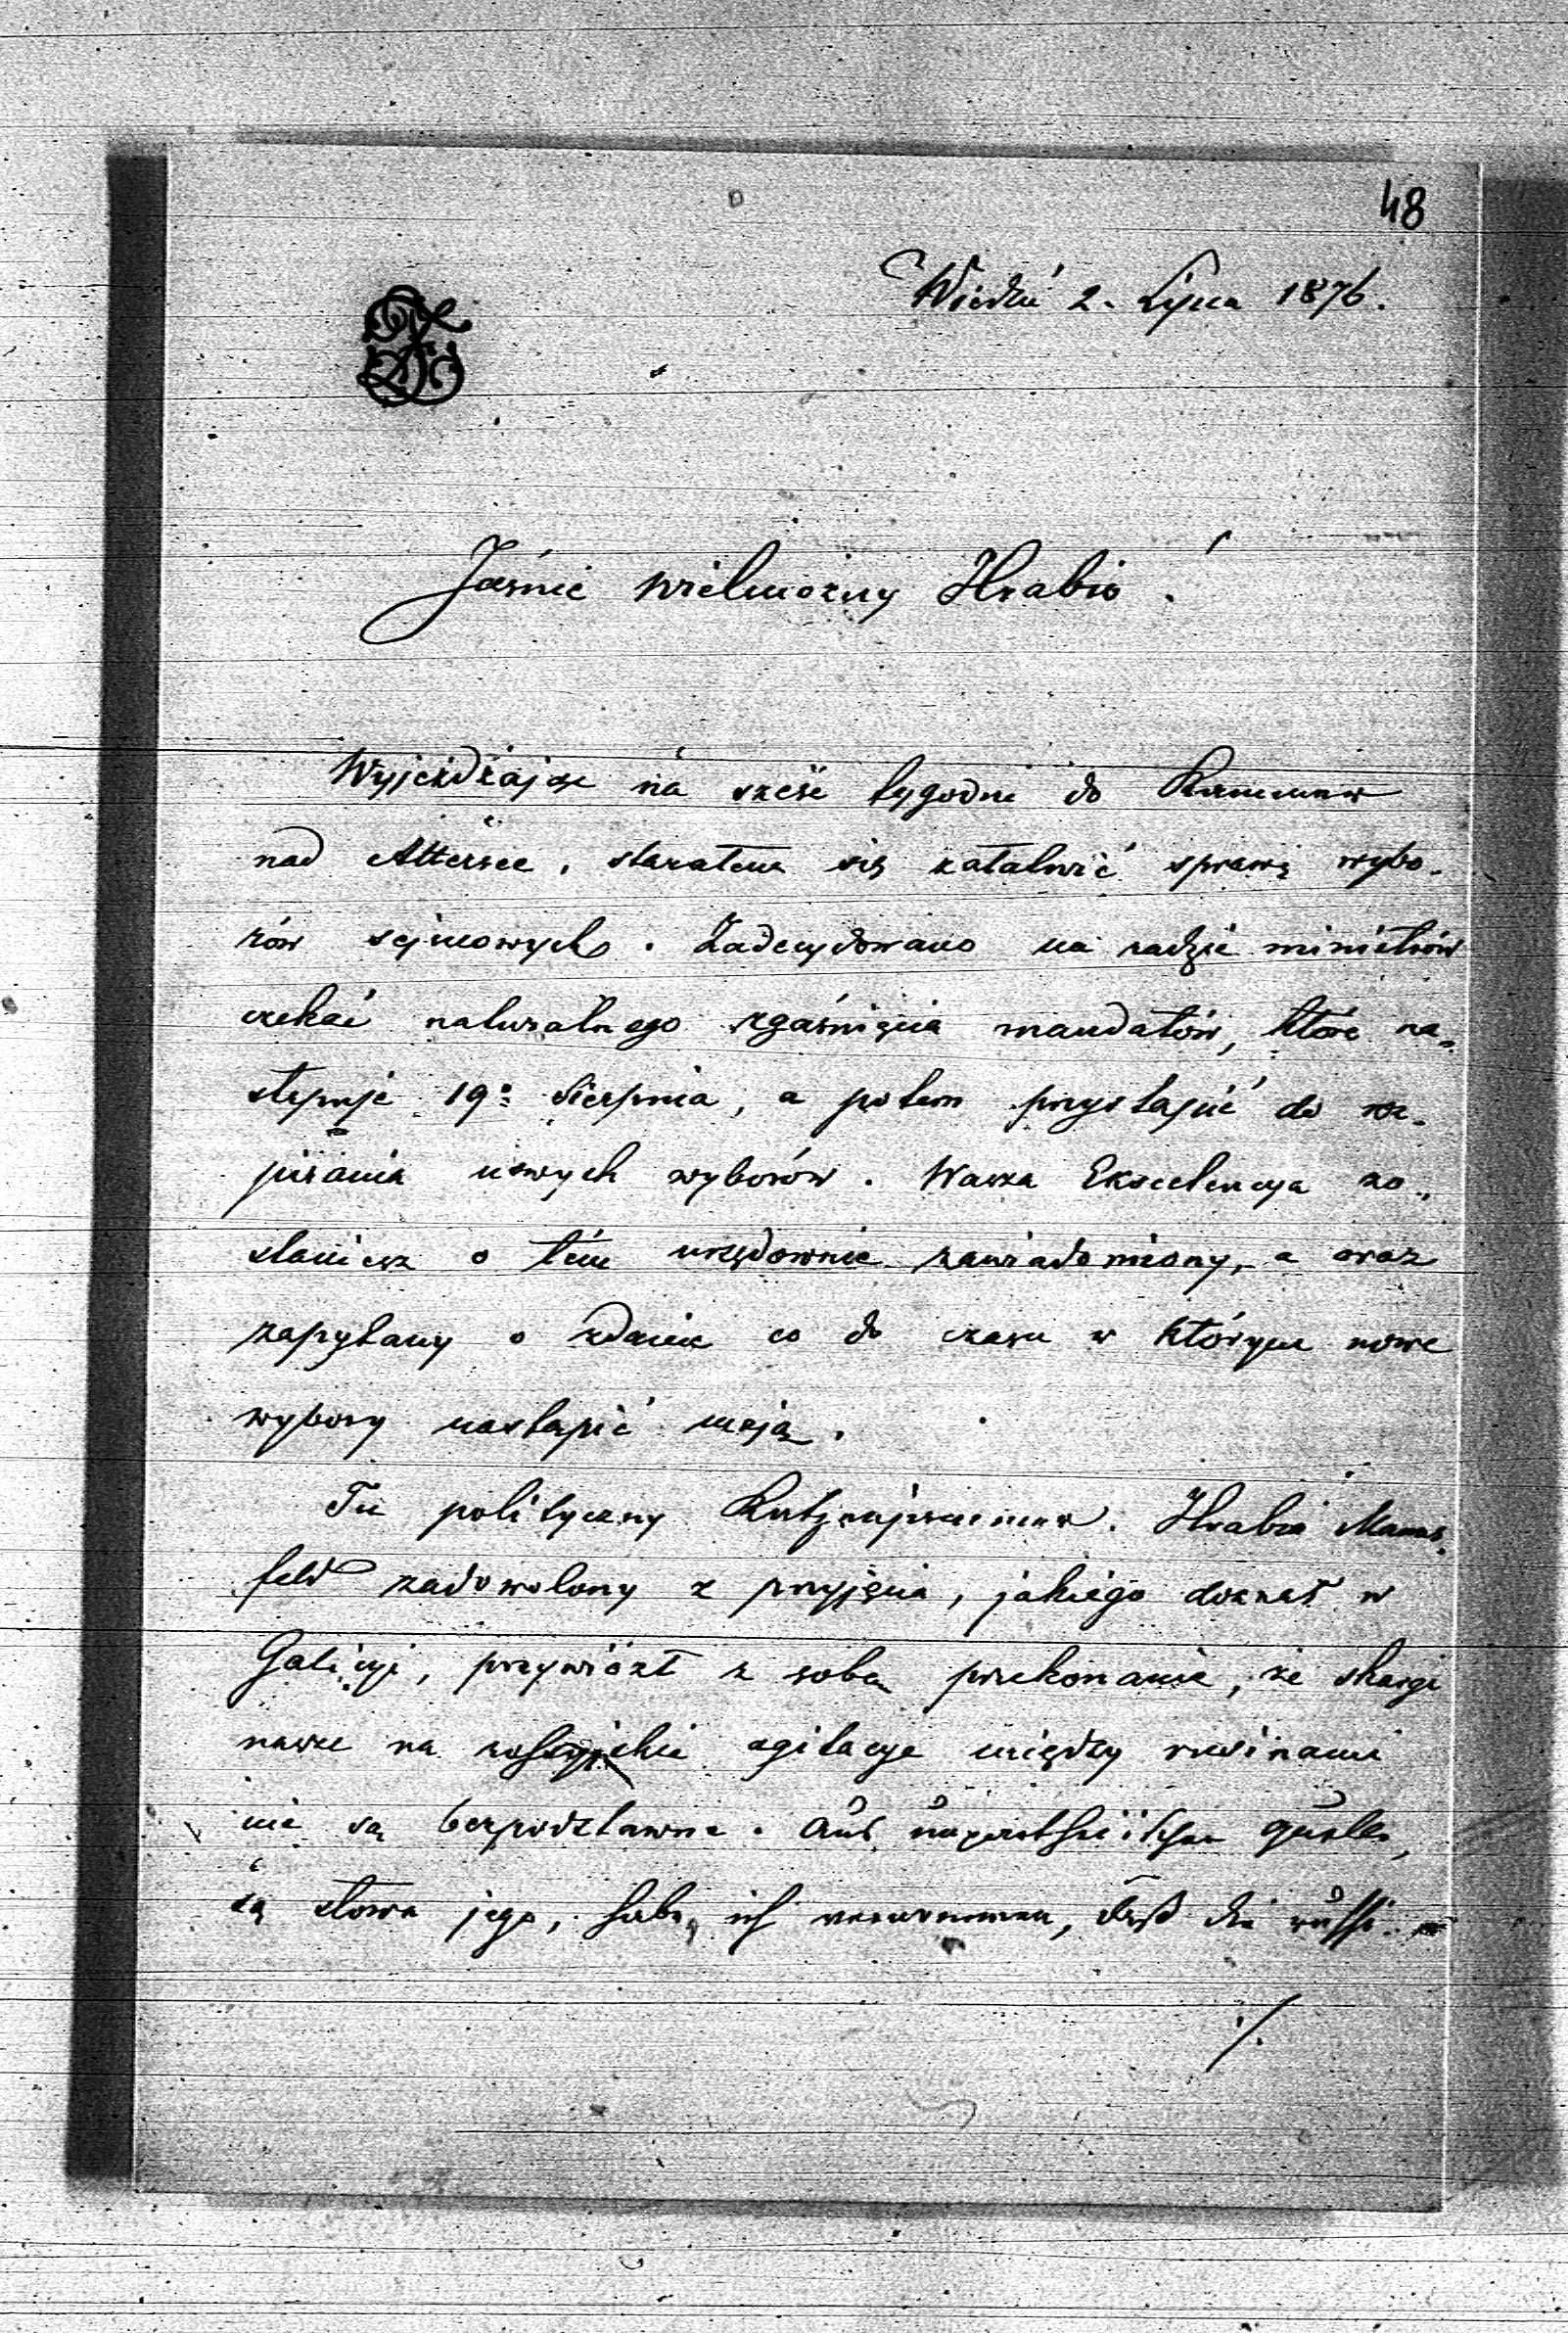 48
Wiedeń 2. Lipca 1876.
Jaśnie wielmożny Hrabio!
Wyjeżdżając na sześć tygodni do Kammer
nad Attersee, starałem się załatwić sprawę wybo-
rów sejmowych. Zadecydowano na radzie ministrów
czekać naturalnego zgaśnięcia mandatów, które na-
stępuje 19: Sierpnia, a potem przystąpić do roz-
pisania nowych wyborów. Wasza Ekscelencya zo-
staniesz o tém urzędownie zawiadomiony, a oraz
zapytany o zdanie co do czasu w którym nowe
wybory nastąpić mają.
Tu polityczny Katzenjammer. Hrabia Manns-
feld zadowolony z przyjęcia, jakiego doznał w
Galicyi, przywiózł z sobą przekonanie, że skargi
nasze na rossyjskie agitacye między rusinami
nie są bezpodstawne. Aus unpartheiischer Quelle,
są słowa jego, habe ich vernommen, daß die russi-
./.